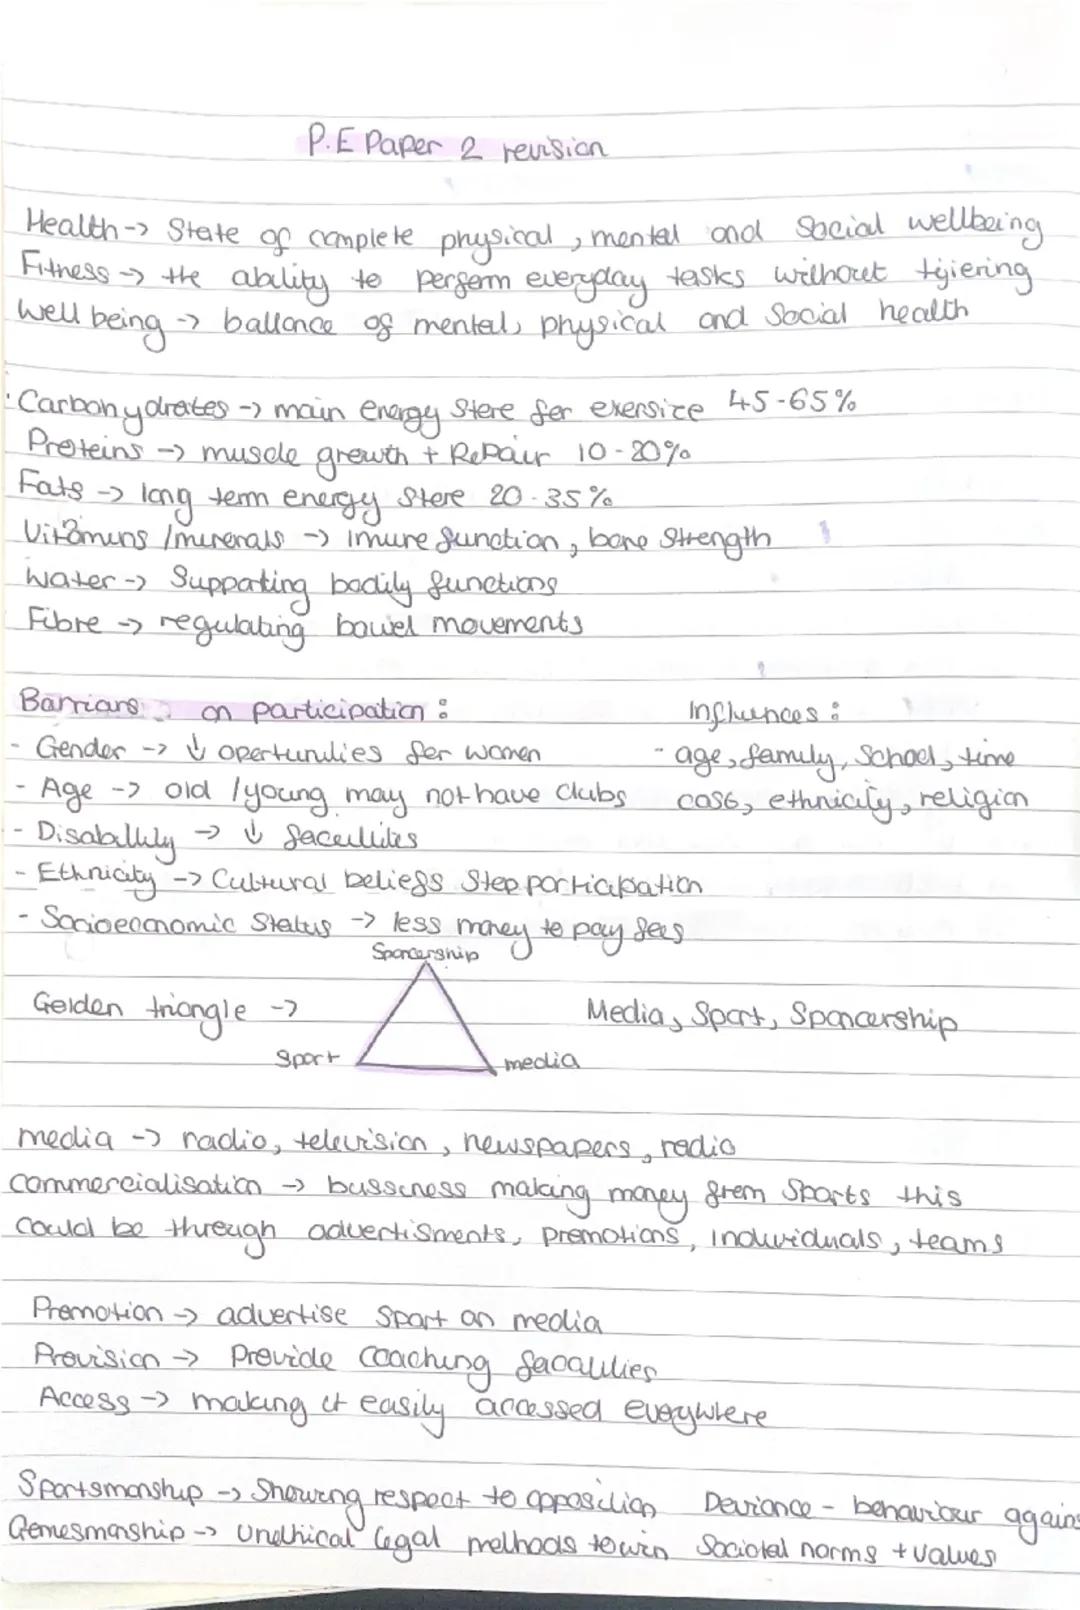 P.E Paper 2 revision
Health -> State of complete physical, mental and Social wellbeing
Fitness -> the ability to perform everyday tasks without tyiering
Well being -> ballance of mental, physical and Social health
Carbohydrates -> main energy Store for exersize 45-65%
Proteins -> muscle growth + RePair 10-20%
Fats -> long term energy Store 20-35%
Vitamins /minerals -> imure function, bone Strength
Water -> Supporting bodily functions
Fibre -> regulating bowel movements
Barriars on participation: Influences:
- Gender -> ↓ opertunities for women - age, family, School, time
- Age -> old /young may not have clubs cost, ethnicity, religion
- Disability -> ↓ facilities
- Ethnicity -> Cultural beliefs Stop participation
- Socioeconomic Status -> less money to pay fees
Sponcership
Golden triangle -> Media, Sport, Sponcership
Sport media
media -> radio, television, newspapers, radio
commercialisation -> bussiness making money from Sports this
could be through advertisments, promotions, individuals, teams
Promotion -> advertise Sport on media
Provision -> Provide coaching facilities
Access -> making it easily accessed everywhere
Sportsmanship -> Showing respect to opposition Deviance - behaviour agains
Gamesmanship -> Unethical legal methods to win Sociotal norms + values